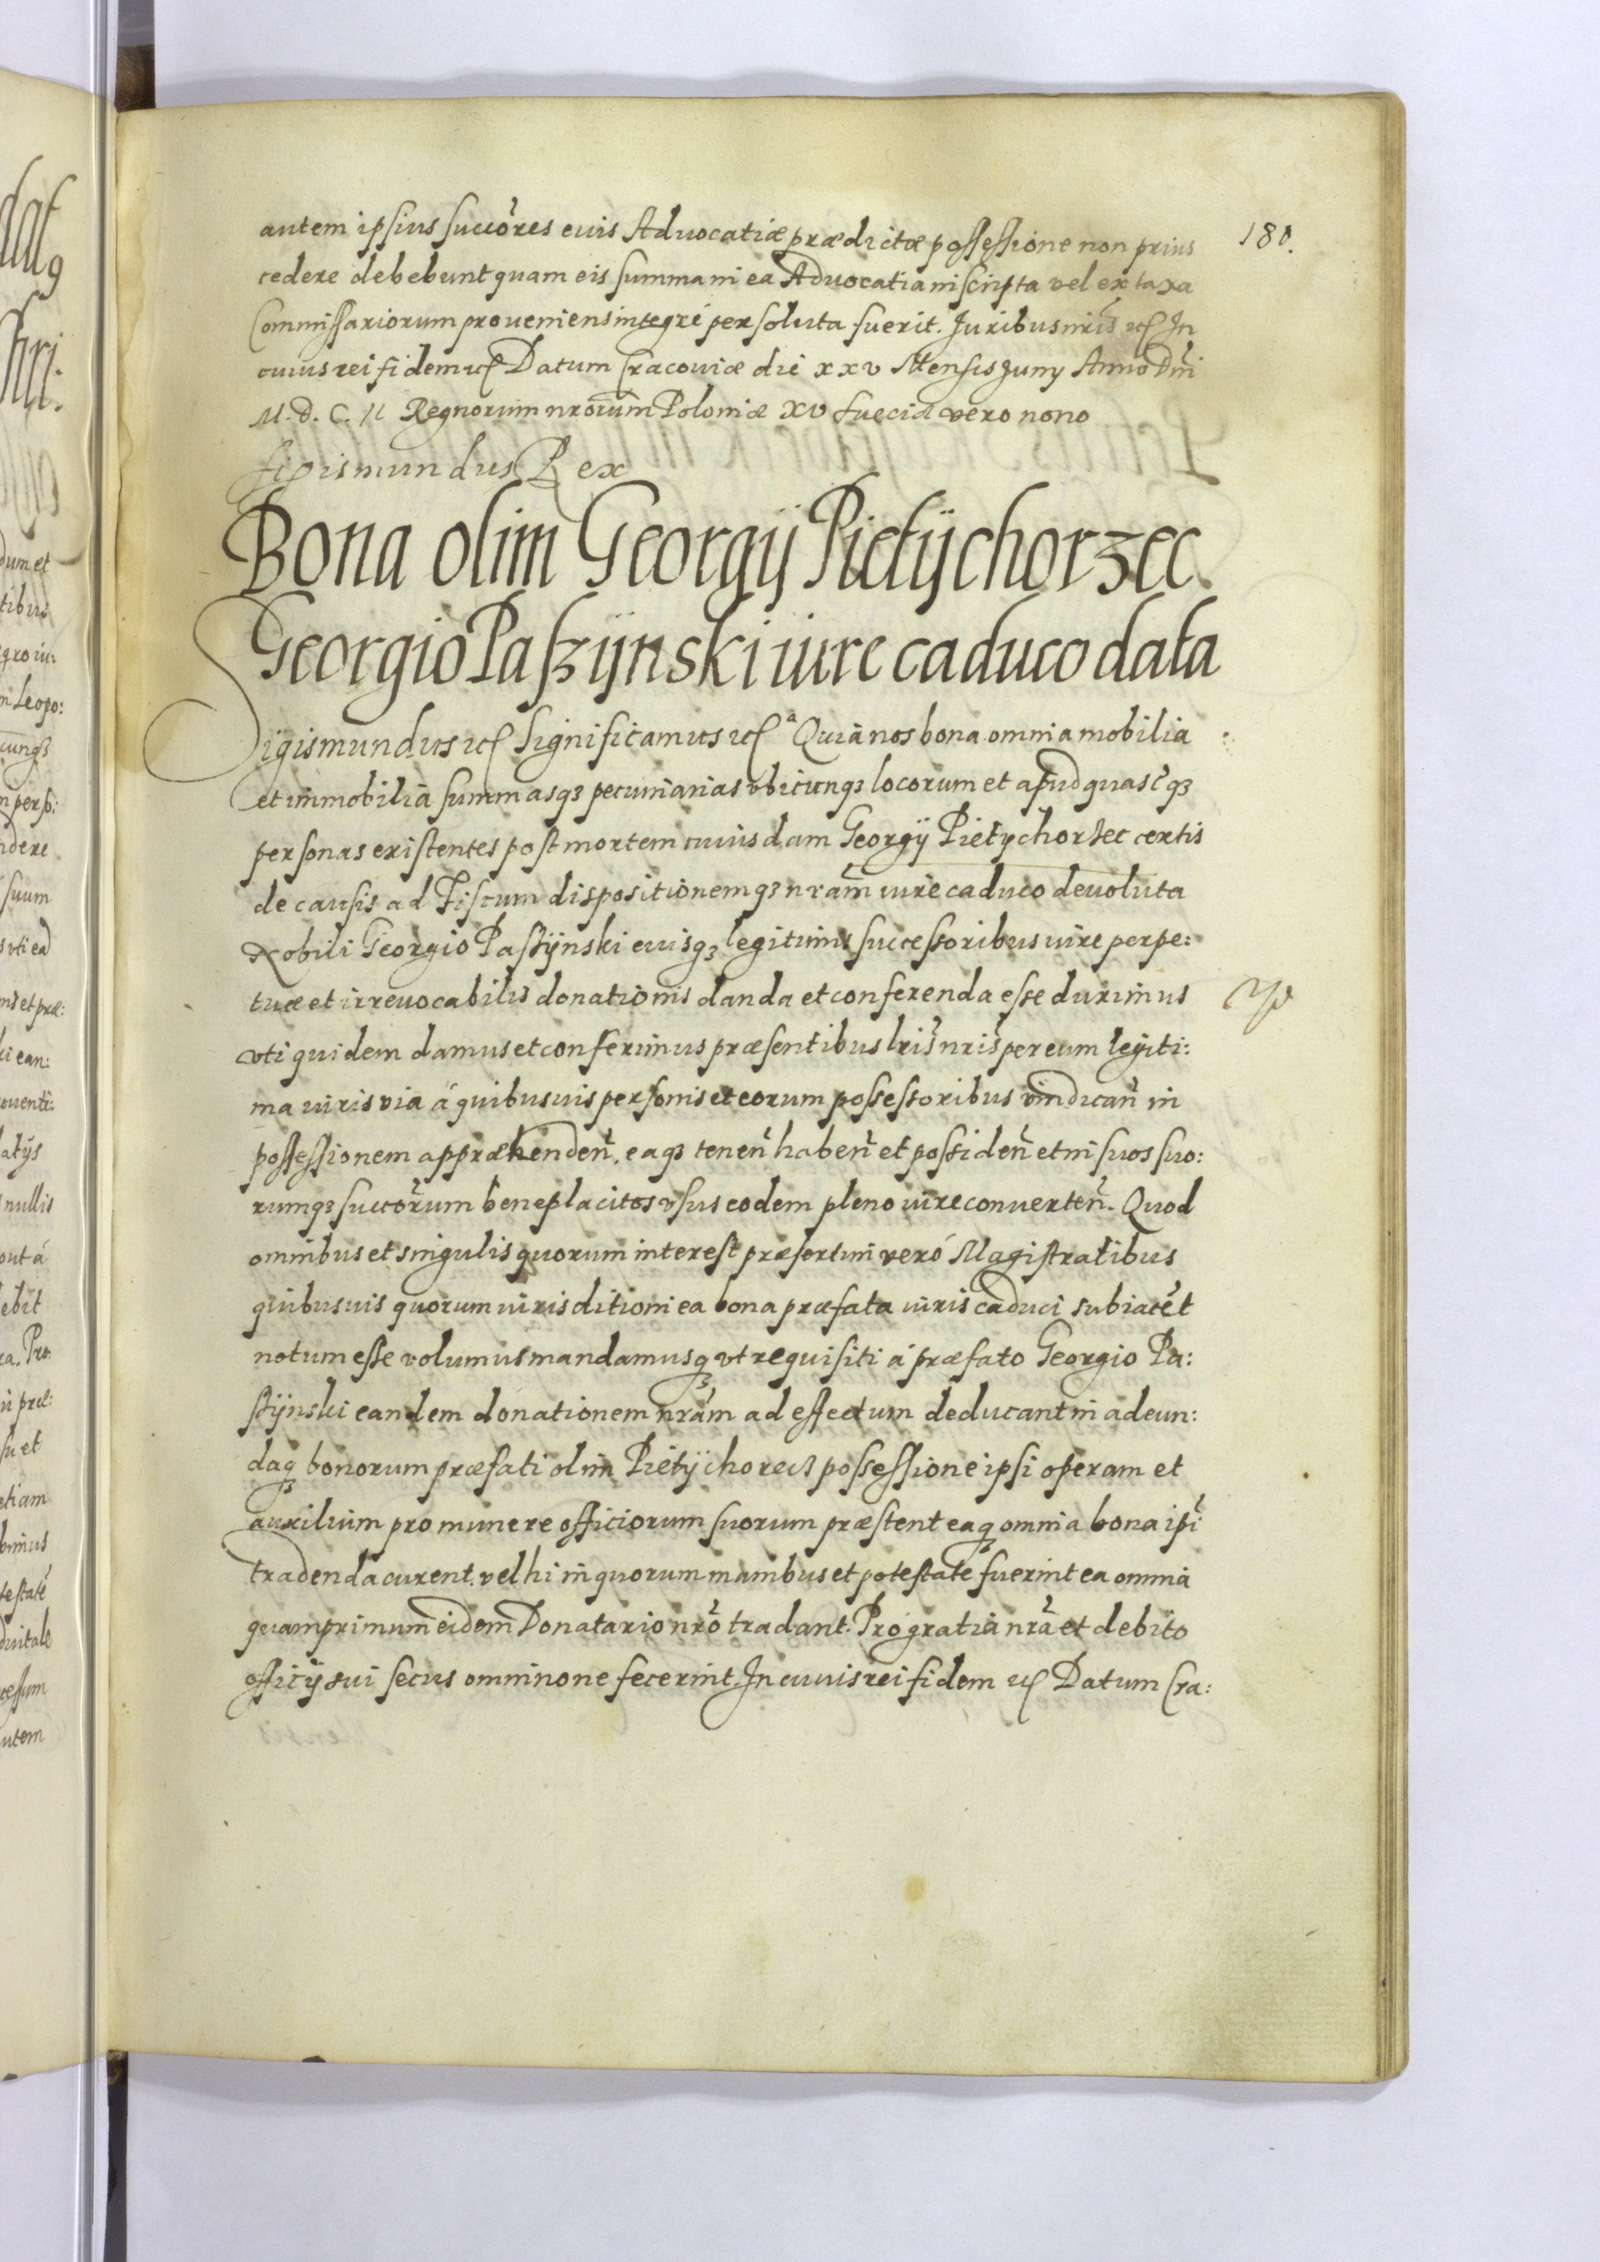 180.
autem ipsius succōres euis Aduocatiæ prædictæ possessione non prius
cedere debebunt quam eis summa in ea Aduocatia inscripta vel ex taxa
Commissariorum proueniens integré persoluta fuerit. Juribus nr̄is etc̄ In
cuius rei fidem etc̄ Datum Cracouiæ die xxv Mensis Juny Anno Dn̄i
M.D.C.II Regnorum nrōrum Poloniæ XV Sueciæ vero nono
Sigismundus Rex
Bona olim Georgÿ Pietÿchorzec
Georgio Paszÿnski iure caduco data
Sigismundus etc̄ Significamus etc̄ a Quia nos bona omnia mobilia
et immobilia summasqꝫ pecuniarias vbicunqꝫ locorum et apud quasc̄qꝫ
personas existentes post mortem cuiusdam Georgÿ Pietychorzec certis
de causis ad Fiscum dispositionemqꝫ nrām iure caduco deuoluta
Nobili Georgio Paszÿnski euisqꝫ legitimis successoribus iure perpe:
tuæ et irreuocabilis donationis danda et conferenda esse duximus
vti quidem damus et conferimus præsentibus lr̄is nr̄is per eum legiti:
ma iuris via á quibusuis personis et eorum possessoribus vindican̄ in
possessionem appræhenden̄. eaqꝫ tenen̄ haben̄ et possiden̄ et in suos suo:
rumqꝫ succōrum beneplacitos vsus eodem pleno iure conuerten̄. Quod
omnibus et singulis quorum interest præsertim veró Magistratibus
quibusuis quorum iurisditioni ea bona præfata iuris caduci subiacēt
notum esse volumus mandamusqꝫ vt requisiti á præfato Georgio Pa:
szÿnski eandem donationem nrām ad effectum deducant in adeun:
daqꝫ bonorum præfati olim Pietÿchorecz possessione ipsi operam et
auxilium pro munere officiorum suorum præstent eaqꝫ omnia bona ip̄i
tradenda curent. vel hi in quorum manibus et potestate fuerint ea omnia
quamprimum eidem Donatario nrō tradant. Pro gratia nrā et debito
officÿ sui secus omnino ne fecerint. In cuius rei fidem etc̄ Datum Cra: